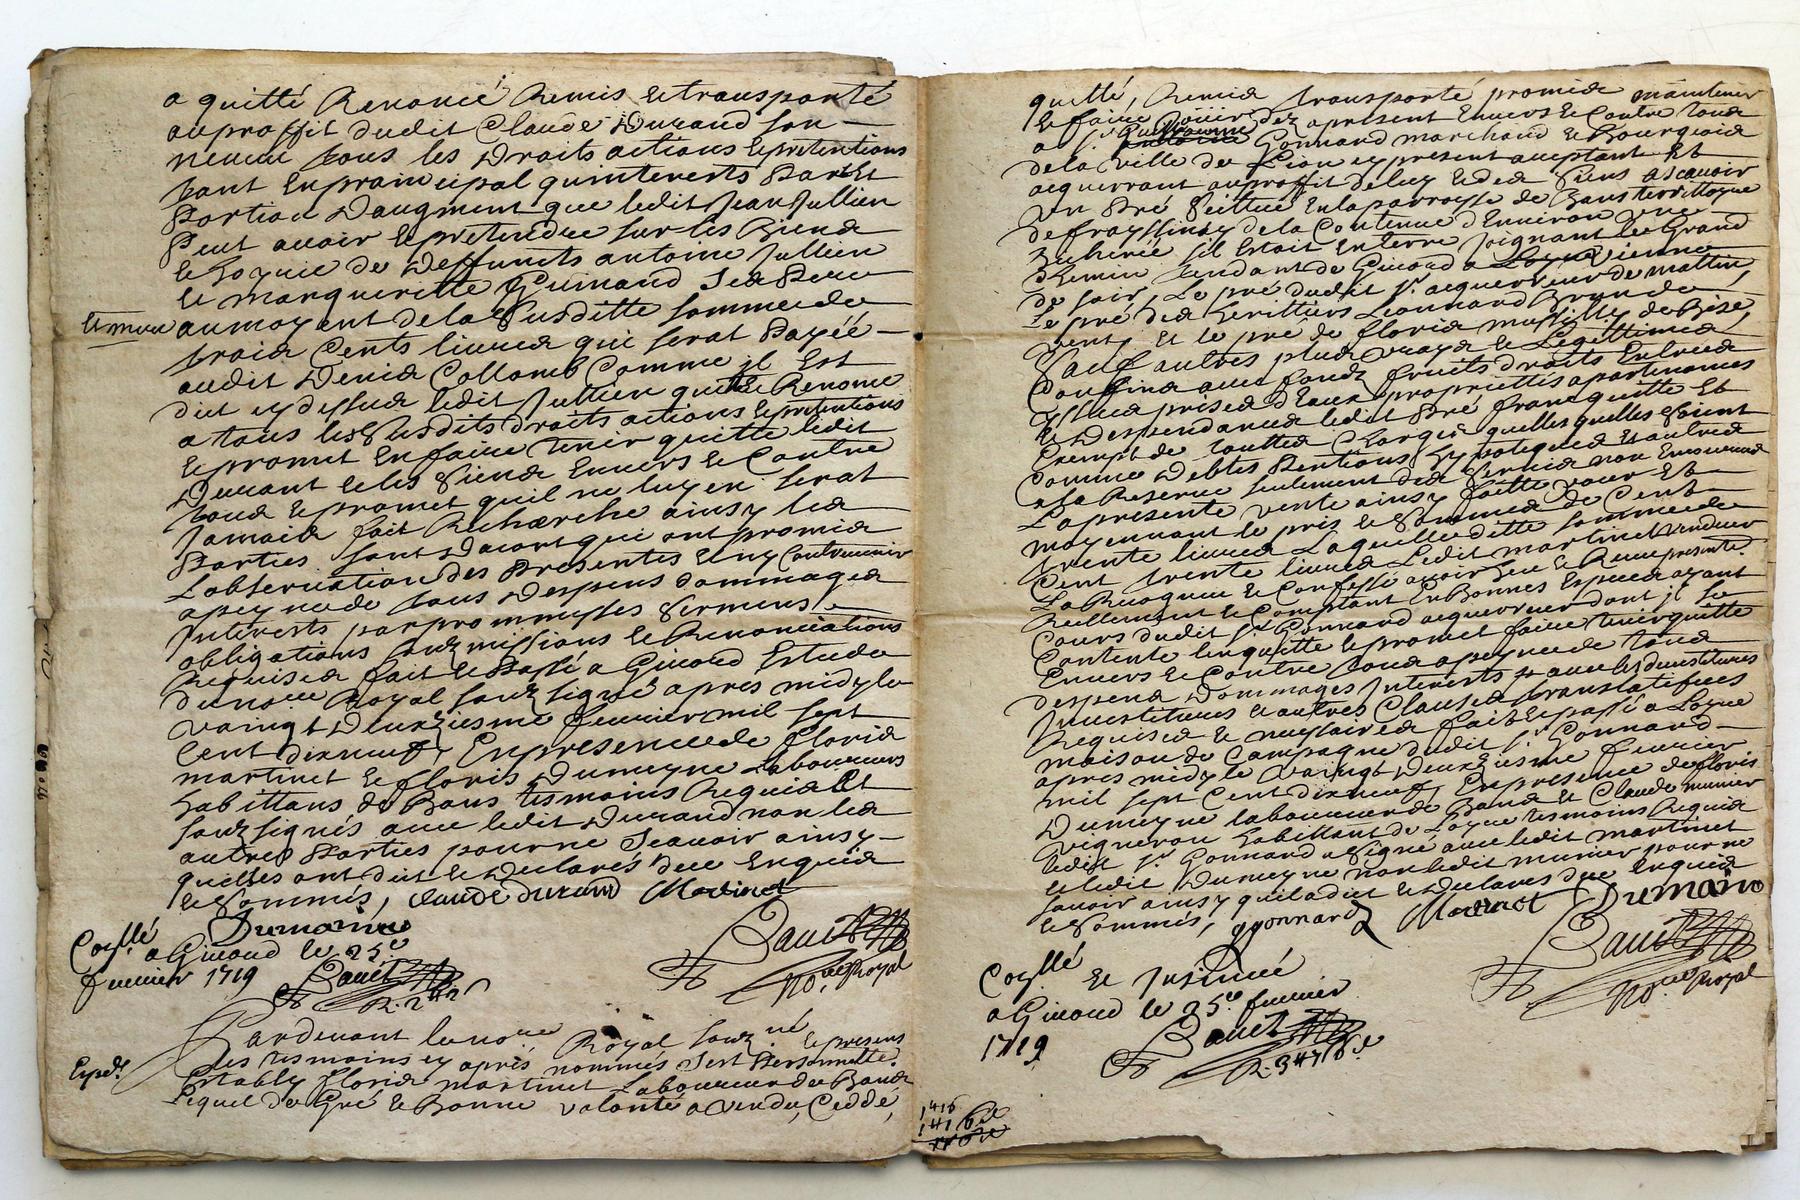 a quitté Renoncé Remis et transporté
auproffit dudit Claude Durand son
neveu tous les Droits actions et pretentions
tant En principal quinterests Part et
Portion Daugment que ledit Jean Jullien
Peut avoir et pretendre sur les Biens
et hoyrie de Deffunts antoine Jullien
et margueritte Guinand Ses Pere
et mere au moyent de la Susditte somme de
trois Cents livres qui serat Payéé
audit Denis Collomb Comme jl Est
dit cy dessus ledit Jullien quitte Renonce
a tous les Susdits droits actions et pretentions
et promet En faire tenir quitte ledit
Durant et les Siens Envers et Contre
tous et promet quil ne luy en serat
Jamais fait Recherche ainsy les
Parties sont Dacort qui ont promis
Lobservation des Presentes et ny Contrevenir
apeyne de tous Despens dommages
Interests par prommesses sermens
obligations soubmissions et Renonciations
Requises fait et Passé a Givord Estude
du no.re Royal soubsigné apres midy le
vaingt Deuxiesme fevrier mil sept
Cent dixneuf, En presence de floris
martinet et floris Dumeyne Laboureurs
habittans de Bans tesmoins Requis Et
soubsignés avec ledit Durand non les
autres Parties pour ne Scavoir ainsy
quelles ont dit et Declaré due Enquis
et Sommés, claude durand Martinet
Dumaine
Co.llé
a Givord le 25e
fevrier 1719
No.re Royal
Pardevant le no.re Royal soubz.né et presens
Expé.
les tesmoins cy aprés nommés Sest Personnelle.
Estably floris martinet Laboureur de Bans
Lequel de Gré et Bonne volonté a vendu, Ceddé,
quitté, Remis transporté promis maintenir
et faire Jouir dez apresent Envers et Contre tous
a s.r Gonnard marchand et Bourgeois
de la ville de Lion cy present aceptant Et
acquerrant auproffit de luy et des Siens ascavoir
un Pré Scittué En la parroisse de Bans territtoyre
de frayssinay de la Contenue dEnviron une
Bicherée sil Estoit En terre Joignant le Grand
Chemin tendant de Givord a vienne
de soir, Le pré dudit s.r acquerreur de mattin,
Le pré des herittiers Leonnard Brun de
vent, Et le pré de floris mussilly de Bise,
Sauf autres plus vrays et Legittimes
Confins avec fonds fruits droits Entrées
yssues prises dEaux propriettés apartenances
et Despendances ledit Pré franquitte Et
Exempt de touttes Charges quelles quelles soient
Comme Debtes Pentions hypoteques et autres
a la Reserve seulement des servis non
La presente vente ainsy faitte pour Et
moyennant le prix et Somme de Cent
trente livres Laquelleditte somme de
Cent trente livres Ledit martinet vendeur
La Recogneu et Confessé avoir heu et Receu presente.
Reellement et Comptant En Bonnes Especes ayant
Cours dudit s.r Gonnard acquerreur dont jl se
Contente len quitte et promet faire tenir quitte
Envers et Contre tous apeyne de tous
despens Dommages Interests avec les devestitures
Investitures et autres Clauses translatifves
Requises et necessaires fait et passé a Loyre
maison de Campagne dudit s.r Gonnard
apres midy le vaingt Deuxiesme fevrier
mil sept Cent dixneuf, En presence de floris
Dumeyne laboureur de Bans et Claude munier
vigneron habittant de Loyre tesmoins Requis
ledit s.r Gonnard a Signé avec ledit martinet
et ledit Dumeyne non ledit munier pour ne
savoir ainsy quil a dit et Declaré due Enquis
et Sommés, ggonnard Martinet Dumaine
Co.llé Et Insinué
a Givord le 25e fevrier
1719
No.re Royal